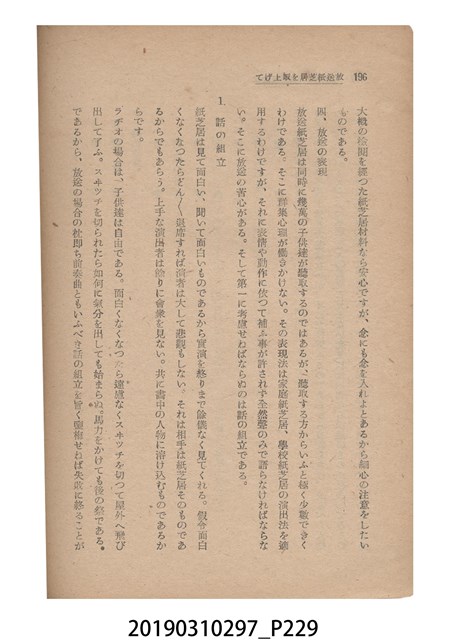 放送紙芝居を取上げて 196
大機の檢閲を經つた紙芝居材料なら安心ですが、念にも念を入れよとあるから細心の注意をしたい
ものである。
四、放送の表現
放送紙芝居は同時に幾萬の子供達が聽取するのではあるが、聽取する方からいふと極く少數できく
わけである。そこに群集心理が働きかけない。その表現法は家庭紙芝居、學校紙芝居の演出法を適
用するわけですが、それに表情や動作に依つて補ふ事が許されず全然聲のみで語らなければならな
い。そこに放送の苦心がある。そして第一に考慮せねばならぬのは話の組立である。
1. 話の組立
紙芝居は見て面白い、聞いて面白いものであるから實演を終りまで餘儀なく見てくれる。假令面白
くなくなつたらどん〱退席すれば演者は大して悲觀もしない。それは相手は紙芝居そのものであ
るからでもあらう。上手な演出者は餘りに會衆を見ない。共に畫中の人物に溶け込むものであるか
らです。
ラヂオの場合は、子供達は自由である。面白くなくなつたら遠慮なくスヰッチを切つて屋外へ飛び
出して了ふ。スヰッチを切られたら如何に氣分を出しても始まらぬ。馬力をかけても後の祭である。
であるから、放送の場合の枕即ち前奏曲ともいふべき話の組立を旨く塩梅せねば失敗に終ることが
20190310297_P229